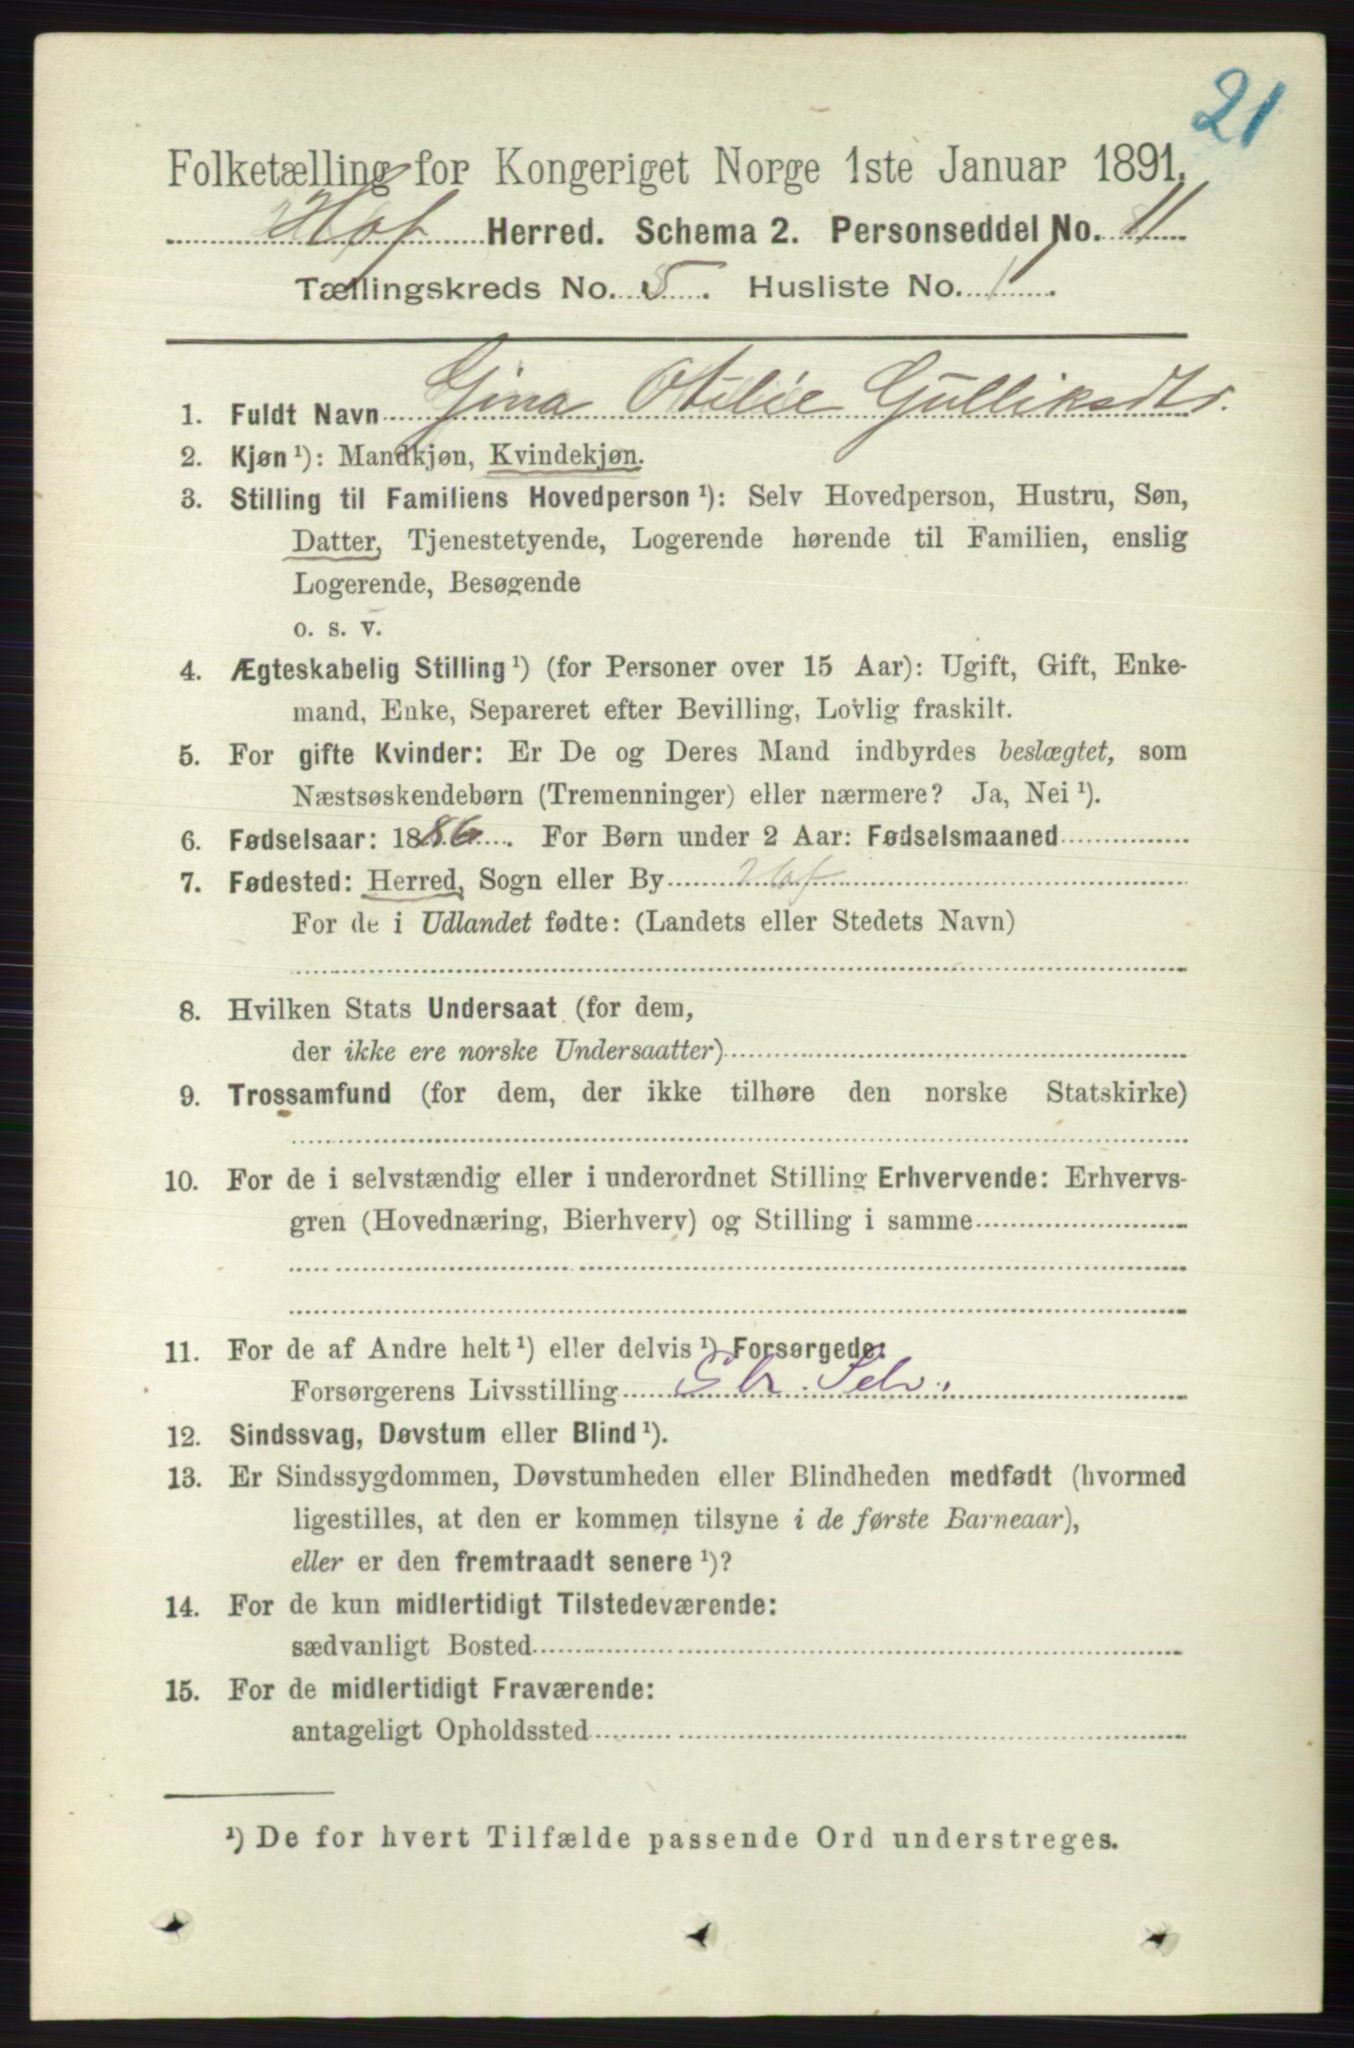 21
Folketælling for Kongeriget Norge 1ste Januar 1891.
Hof Herred. Schema 2. Personseddel No. 11
Tællingskreds No. 5. Husliste No. 1.
1. Fuldt Navn Gina Otilie Gulliksdtr.
2. Kjøn ¹): Mandkjøn, Kvindekjøn.
3. Stilling til Familiens Hovedperson ¹): Selv Hovedperson, Hustru, Søn,
Datter, Tjenestetyende, Logerende hørende til Familien, enslig
Logerende, Besøgende
o. s. v.
4. Ægteskabelig Stilling ¹) (for Personer over 15 Aar): Ugift, Gift, Enke-
mand, Enke, Separeret efter Bevilling, Lovlig fraskilt.
5. For gifte Kvinder: Er De og Deres Mand indbyrdes beslægtet, som
Næstsøskendebørn (Tremenninger) eller nærmere? Ja, Nei ¹).
6. Fødselsaar: 1886. For Børn under 2 Aar: Fødselsmaaned
7. Fødested: Herred, Sogn eller By Hof
For de i Udlandet fødte: (Landets eller Stedets Navn)
8. Hvilken Stats Undersaat (for dem,
der ikke ere norske Undersaatter)
9. Trossamfund (for dem, der ikke tilhøre den norske Statskirke)
10. For de i selvstændig eller i underordnet Stilling Erhvervende: Erhvervs-
gren (Hovednæring, Bierhverv) og Stilling i samme
11. For de af Andre helt ¹) eller delvis ¹) Forsørgede:
Forsørgerens Livsstilling Selv.
12. Sindssvag, Døvstum eller Blind ¹).
13. Er Sindssygdommen, Døvstumheden eller Blindheden medfødt (hvormed
ligestilles, at den er kommen tilsyne i de første Barneaar),
eller er den fremtraadt senere ¹)?
14. For de kun midlertidigt Tilstedeværende:
sædvanligt Bosted
15. For de midlertidigt Fraværende:
antageligt Opholdssted
¹) De for hvert Tilfælde passende Ord understreges.